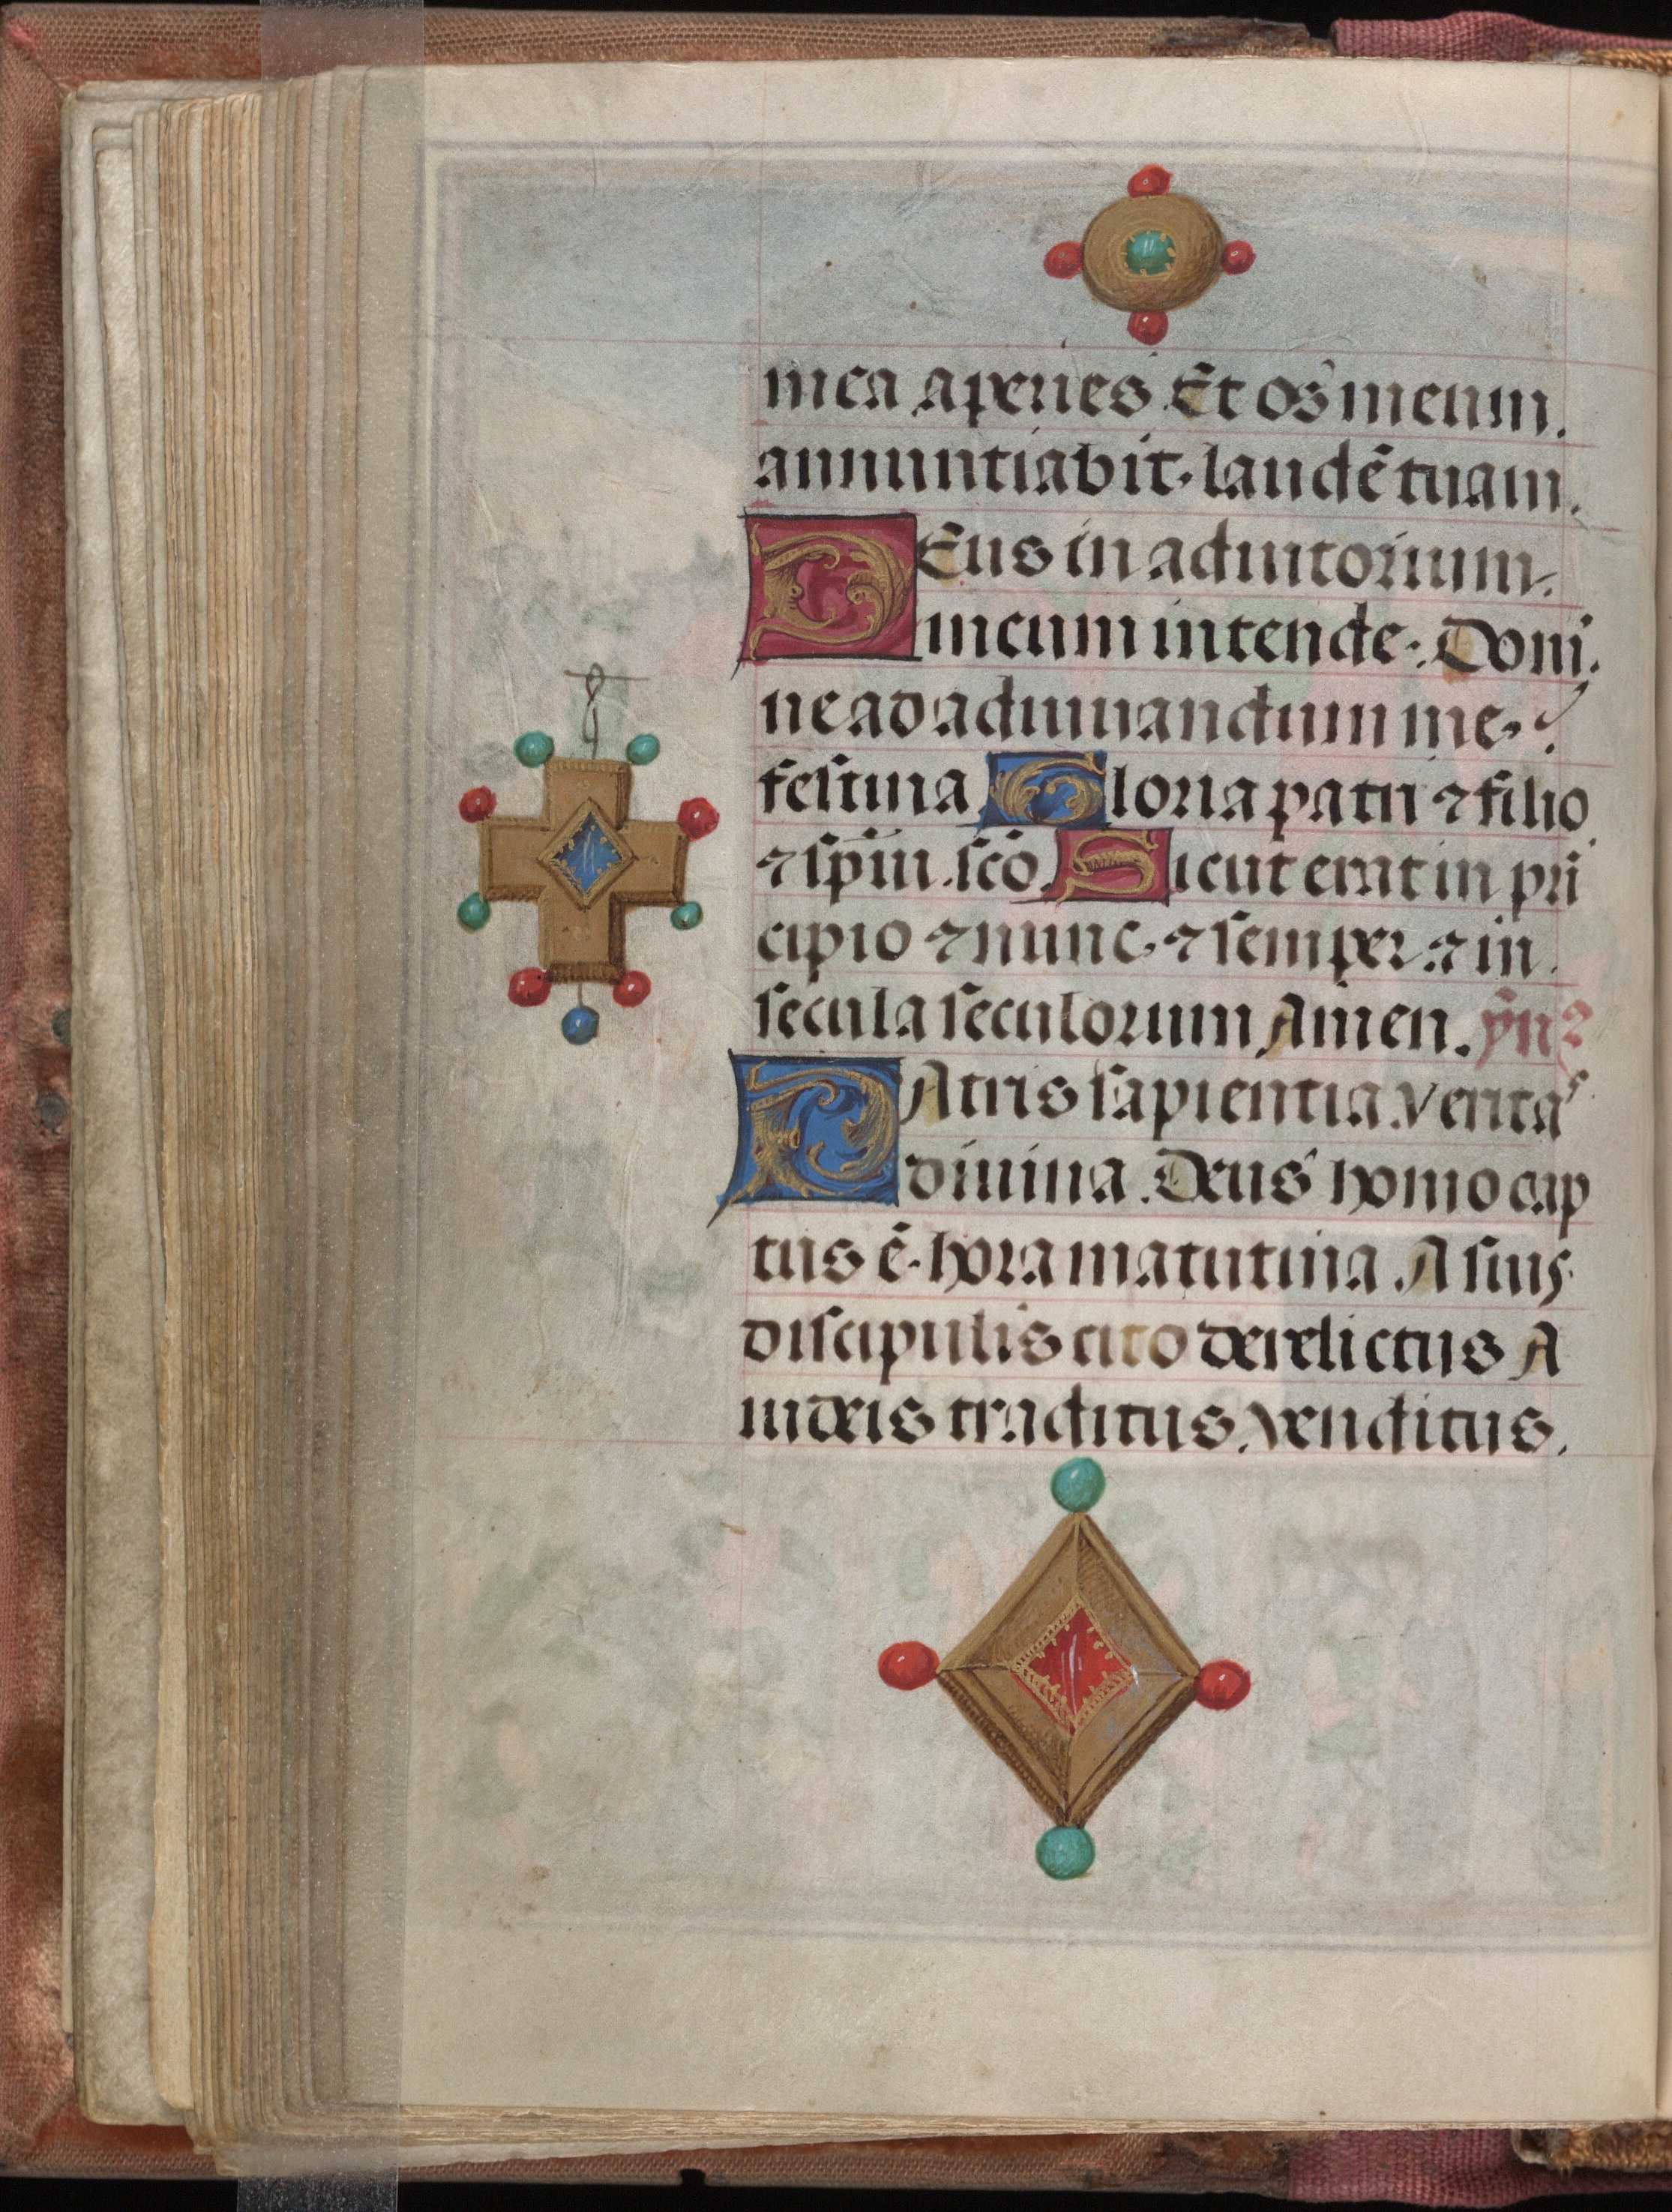 mea aperies Et os meum.
annuntiabit. laudē tuam.
DEus in adiutorium.
meum intende. Domi.
ne ad adiuuandum me.
festina Gloria patri ⁊ filio
⁊ spūi. scō. Sicut erat in pri
cipio ⁊ nunc. ⁊ semper. ⁊ in.
secula seculorum Amen. ẏnꝰ
PAtris sapientia veritas
diuina. Deus homo cap
tus ē. hora matutina. A suis
discipulis cito derelictus A
iudeis traditus. venditus.